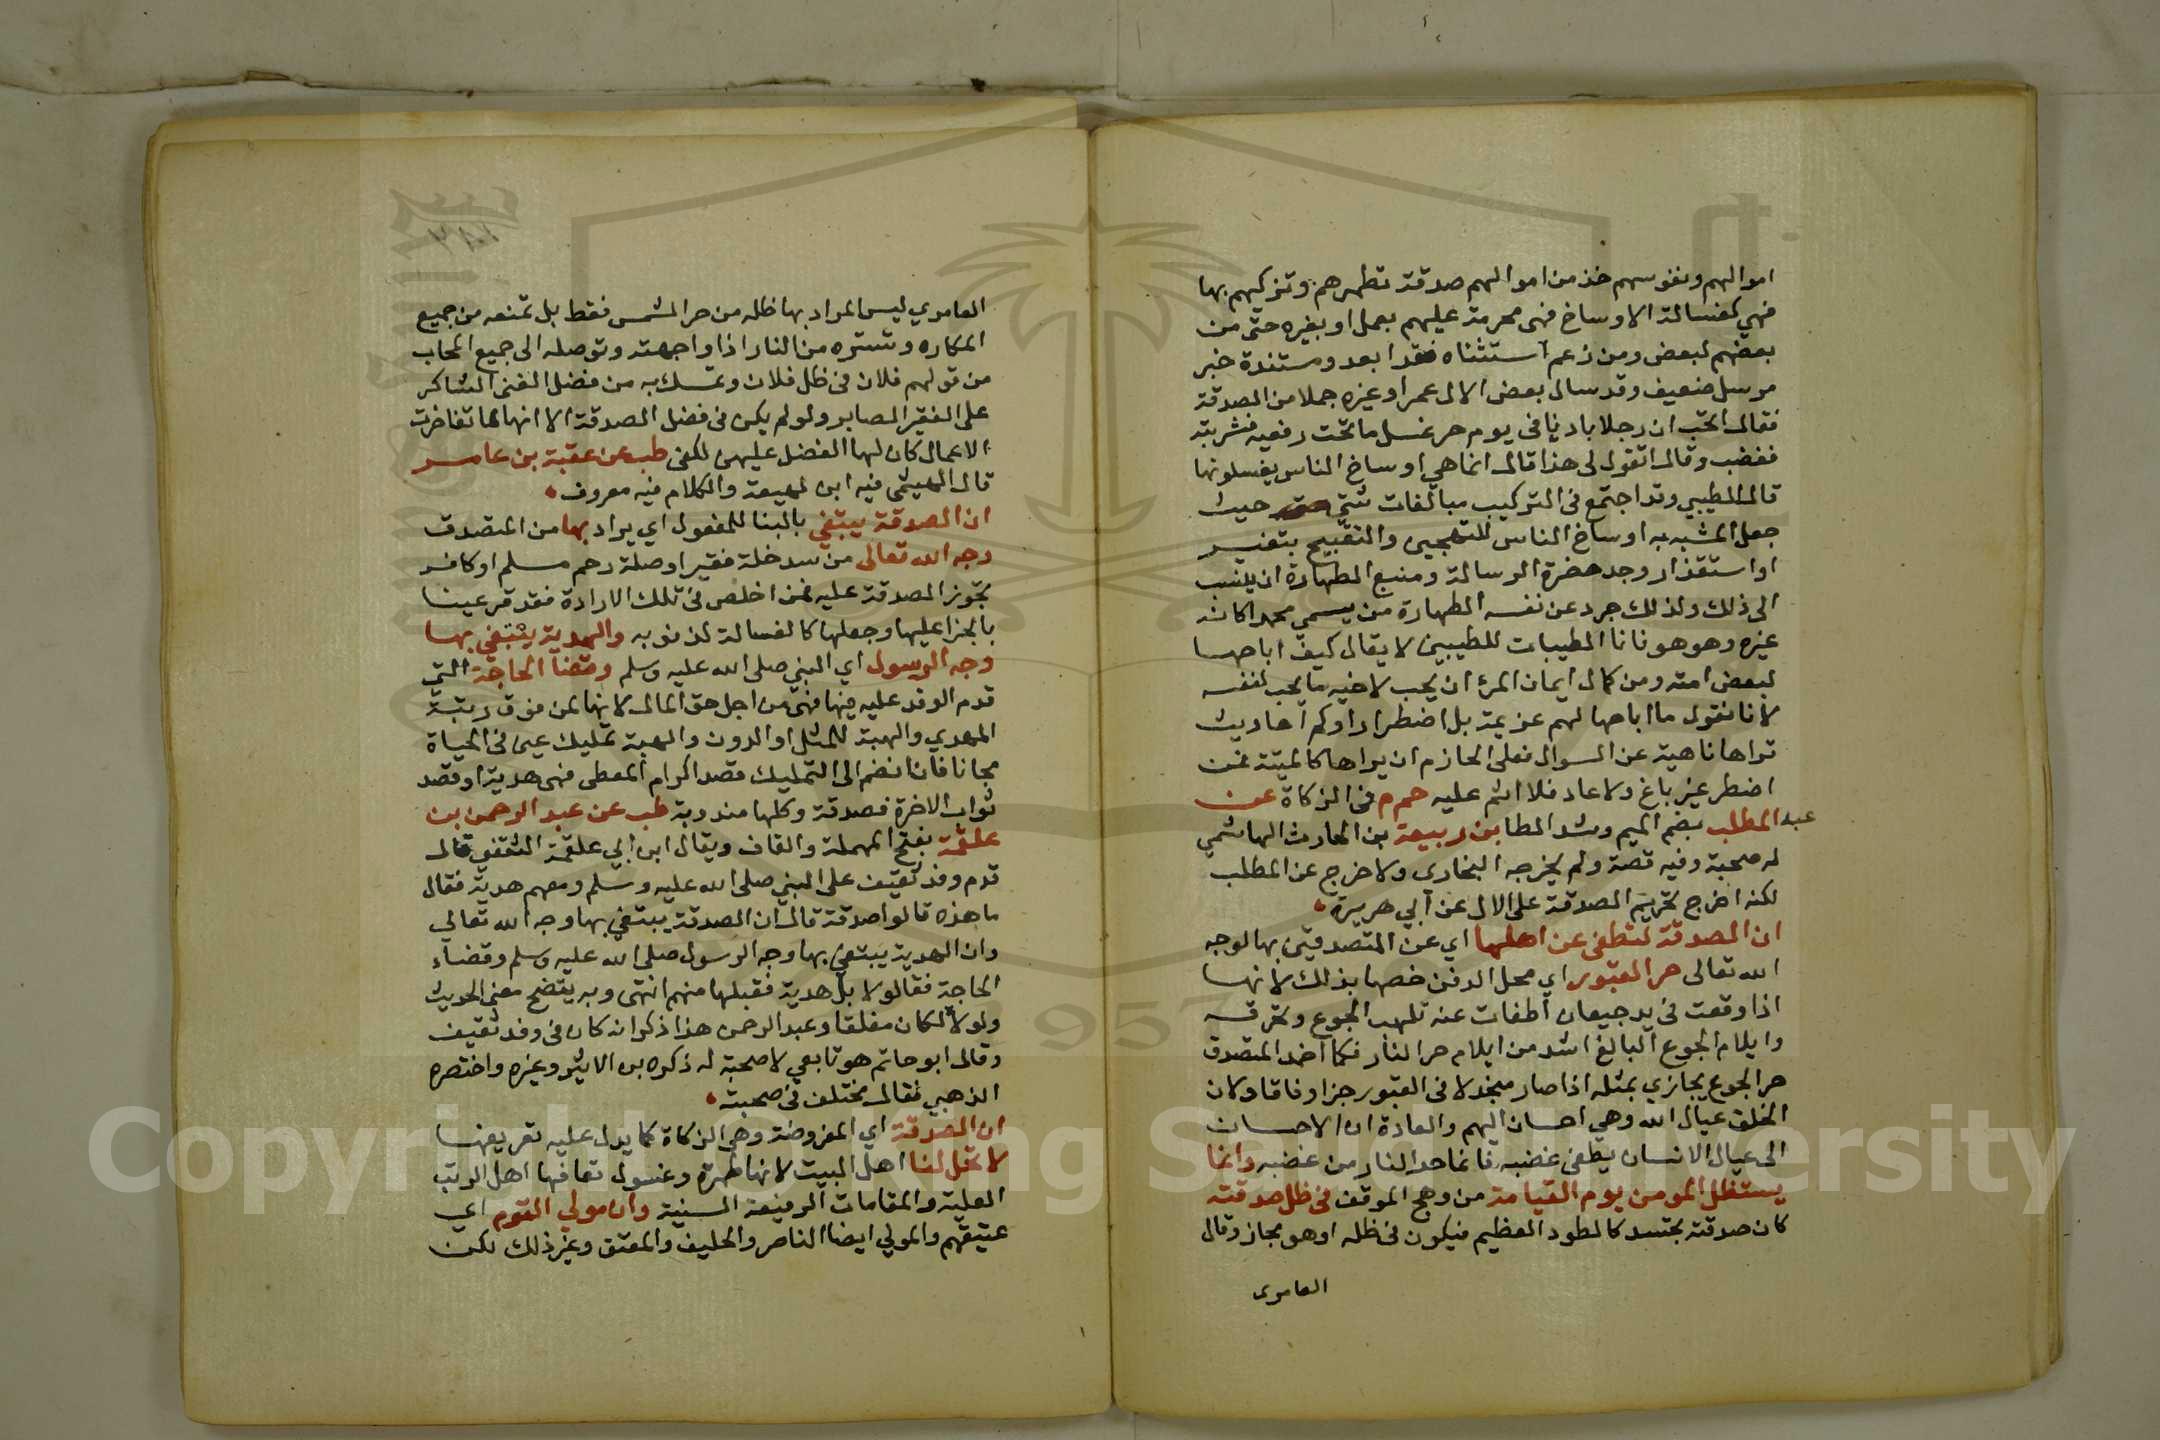 اموالهم ونفوسهم خذ من اموالهم صدقة تطهرهم وتزكيهم بها
فهي كغسالة الاوساخ فهي محرمة عليهم بعمل او بغيره حتى من
بعضهم لبعض ومن زعم استثناه فقد ابعد ومستنده خبر
مرسل ضعيف وقد سال بعض الال عمر او غيره جملا من الصدقة
فقال اتحب ان رجلا بادنا في يوم حر غسل ما تحت رفغيه فشربته
فغضب وقال اتقول لى هذا قال انما هي اوساخ الناس يغسلونها
قال الطيبي وقد اجتمع فى التركيب مبالغات شتى حيث
جعل المشبه به اوساخ الناس للتهجين والتقبيح بتنفير
او استقذار وجل حضرة الرسالة ومنبع الطهارة ان ينسب
الى ذلك ولذلك جرد عن نفسه الطهارة من يسمى محمدا كانه
غيره وهو هو فان الطيبات للطيبين لا يقال كيف اباحها
لبعض امته ومن كمال ايمان المرء ان يحب لاخيه ما يحب لنفسه
لانا نقول ما اباحها لهم عزيمة بل اضطرارا وكم احاديث
تراها ناهية عن السوال فعلى الحازم ان يراها كالميتة فمن
اضطر غير باغ ولا عاد فلا اثم عليه حم م فى الزكاة عن
عبد المطلب بضم الميم وشد الطا بن ربيعة بن الحارث الهاشمي
له صحبة وفيه قصة ولم يخرجه البخارى ولا خرج عن المطلب
لكنه اخرج تحريم الصدقة على الال عن ابي هريرة
ان الصدقة لتطفى عن اهلها اي عن المتصدقين بها لوجه
الله تعالى حر القبور اي محل الدفن خصها بذلك لانها
اذا وقعت في يد جيعان اطفات عنه تلهب الجوع وتحرقه
وايلام الجوع البالغ اشد من ايلام حر النار فكما اخمد المتصدق
حر الجوع يجازي بمثله اذا صار منجدلا فى القبور جزا وفاقا ولان
الخلق عيال الله وهي احسان اليهم والعادة ان الاحسان
الى عيال الانسان يطفى غضبه فانما حر النار من غضبه وانما
يستظل المومن يوم القيامة من وهج الموقف فى ظل صدقته
كان صدقته تجتسد كالطود العظيم فيكون فى ظله او هو مجاز وقال
العامرى
العامري ليس المراد بها ظله من حر الشمس فقط بل تمنعه من جميع
المكاره وتستره من النار اذا واجهته وتوصله الى جميع المحاب
من قولهم فلان فى ظل فلان وتمسك به من فضل الغنى الشاكر
على الفقير الصابر ولو لم يكن فى فضل الصدقة الا انها لما تفاخرت
الاعمال كان لها الفضل عليهن لكفى طب عن عقبة بن عامر
قال الهيثمى فيه ابن لهيعة والكلام فيه معروف
ان الصدقة يبتغي بالبنا للمفعول اي يراد بها من المتصدق
وجه الله تعالى من سد خلة فقير او صلة رحم مسلم او كافر
تجوز الصدقة عليه فمن اخلص فى تلك الارادة فقد قر عينا
بالجزا عليها وجعلها كالغسالة لذنوبه والهدية يبتغي بها
وجه الرسول اي النبي صلى الله عليه وسلم وقضا الحاجة التي
قدم الوفد عليه فيها فهى من اجل حق المال لانها لمن فوق رتبة
المهدي والهبة للمثل او الدون والهبة تمليك عين فى الحياة
مجانا فان انضم الى التمليك قصد اكرام المعطى فهى هدية او قصد
ثواب الاخرة فصدقة وكلها مندوبة طب عن عبد الرحمن بن
علقمة بفتح المهملة والقاف ويقال ابن ابي علقمة الثقفي قال
قدم وفد ثقيف على النبي صلى الله عليه وسلم ومعهم هدية فقال
ما هذه قالوا صدقة قال ان الصدقة يبتغي بها وجه الله تعالى
وان الهدية يبتغي بها وجه الرسول صلى الله عليه وسلم وقضاء
الحاجة فقالوا لا بل هدية فقبلها منهم انتهى وبه يتضح معنى الحديث
ولولاه لكان مغلقا وعبد الرحمن هذا ذكر انه كان فى وفد ثقيف
وقال ابو حاتم هو تابعي لا صحبة له ذكره بن الاثير وغيره واختصره
الذهبي فقال مختلف فى صحبته
ان الصدقة اي المفروضة وهى الزكاة كما يدل عليه تعريفها
لا تحل لنا اهل البيت لانها طهرة وغسول تعافها اهل الرتب
العلية والمقامات الرفيعة السنية وان مولى القوم اي
عتيقهم والمولى ايضا الناصر والحليف والمعتق وغير ذلك لكن
Copyright © King Saud University